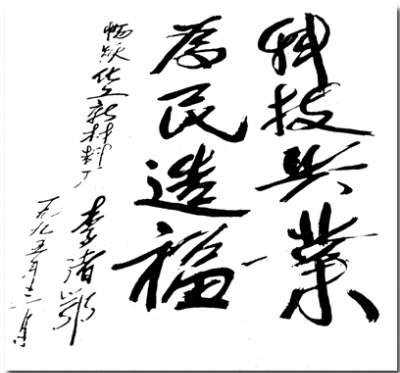 科技兴業
為民造福
化工新材料厂
李
一九九五年十二月